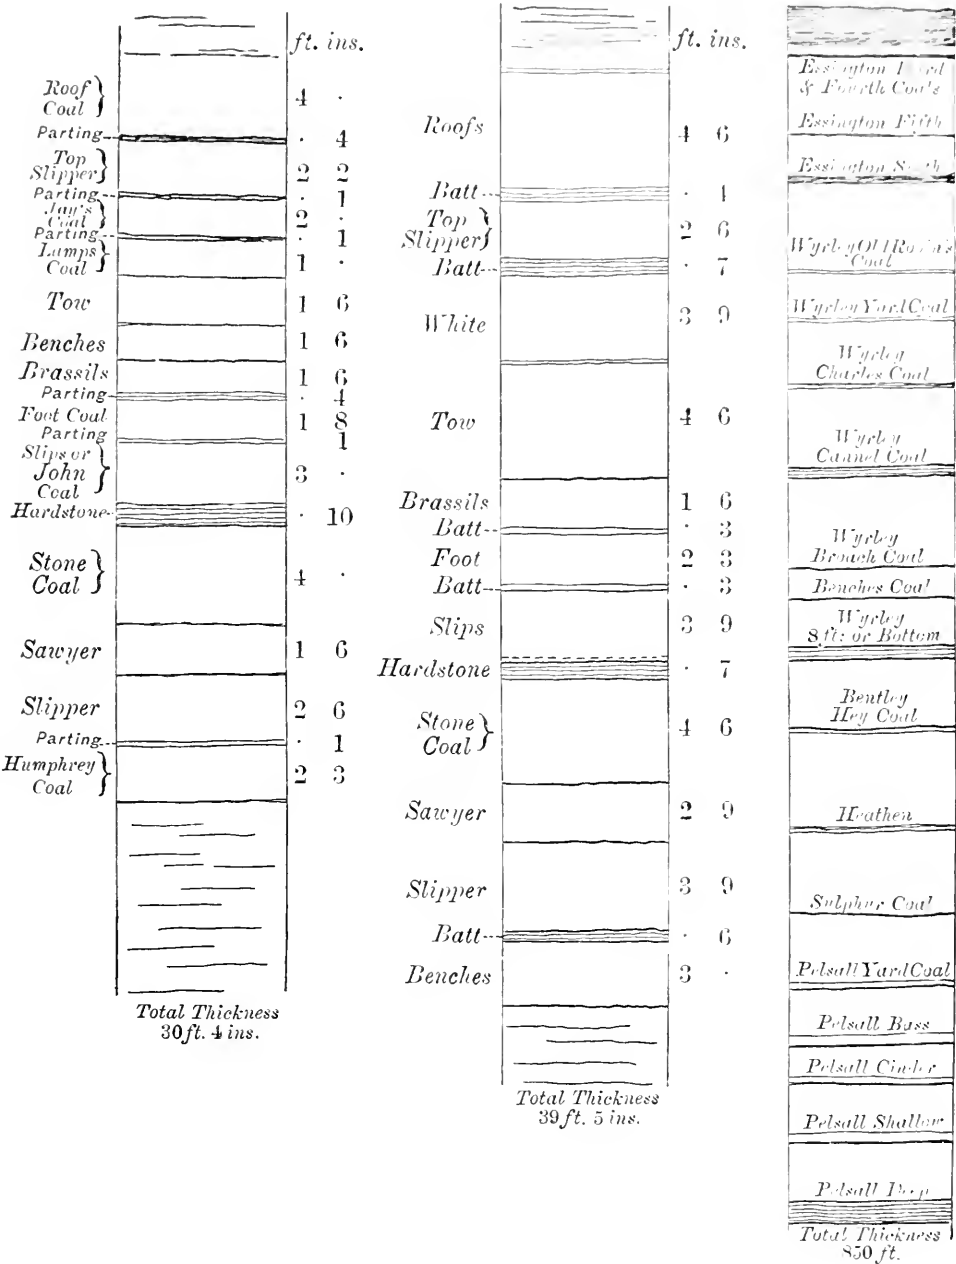 ft. ins.
Roof
Coal
4 ·
Parting · 4
Top
Slipper
2 2
Parting · 1
Jay's
Coal
2 ·
Parting · 1
Lumps
Coal
1 ·
Tow 1 6
Benches 1 6
Brassils 1 6
Parting · 4
Foot Coal 1 8
Parting 1
Slips or
John
Coal
3 ·
Hardstone · 10
Stone
Coal
4 ·
Sawyer 1 6
Slipper 2 6
Parting · 1
Humphrey
Coal
2 3
Total Thickness
30 ft. 4 ins.
ft. ins.
Roofs 4 6
Batt ·
Top
Slipper
2 6
Batt · 7
White 3 9
Tow 4 6
Brassils 1 6
Batt · 3
Foot 2 3
Batt · 3
Slips 3 9
Hardstone · 7
Stone
Coal
4 6
Sawyer 2 9
Slipper 3 9
Batt · 6
Benches 3 ·
Total Thickness
39 ft. 5 ins.
Essington
& Fourth Coals
Essington Fifth
Essington Sixth
Wyrley Old Robin's
Coal
Wyrley Yard Coal
Wyrley
Charles Coal
Wyrley
Cannel Coal
Wyrley
Brooch Coal
Benches Coal
Wyrley
8 ft: or Bottom
Bentley
Hey Coal
Heathen
Sulphur Coal
Pelsall Yard Coal
Pelsall Bass
Pelsall Cinder
Pelsall Shallow
Pelsall Deep
Total Thickness
850 ft.